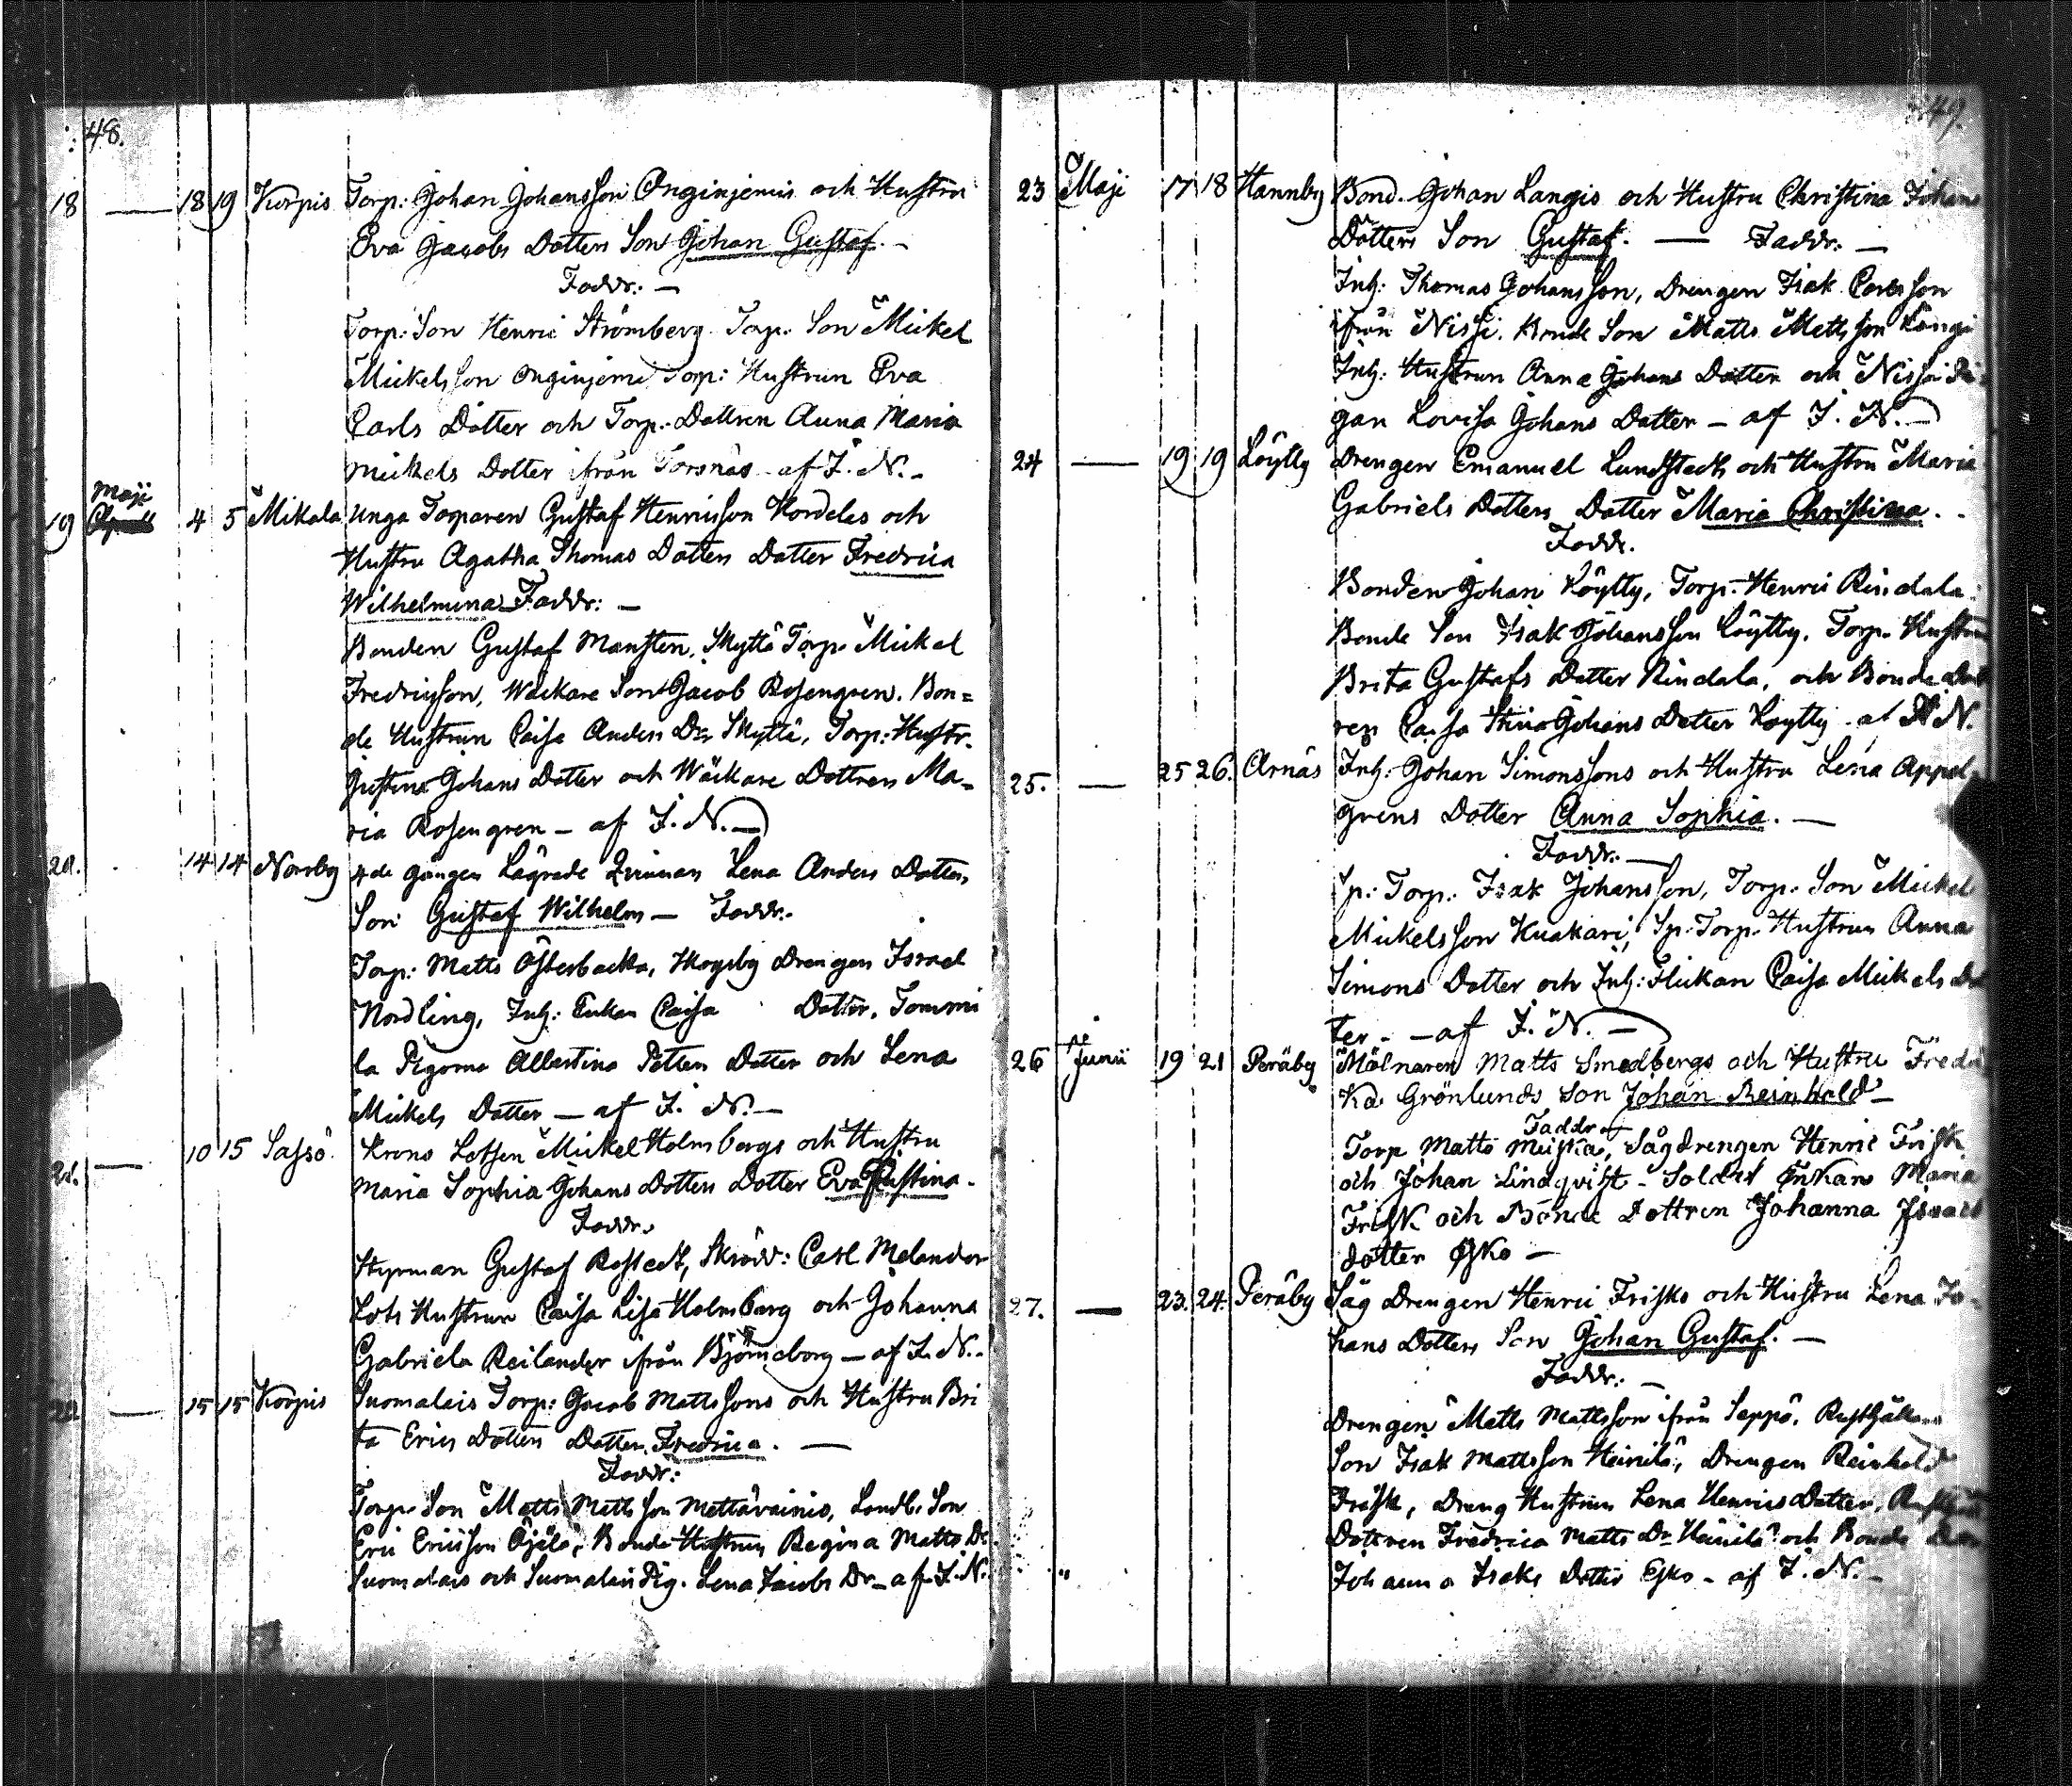 48.
18 — 18 19 Korpis Torp: Johan Johansson Onginjemis och Hustru
Eva Jacobs Dotters Son Johan Gustaf. —
Faddr: —
Torp: Son Henric Strömberg Torp. Son Mickel
Mickelsson Onginjemi Torp: Hustrun Eva
Carls Dotter och Torp. Dottren Anna Maria
Mickels Dotter ifrån Torsnäs – af I. N. –
Maji
19 4 5 Mikala Unga Torparen Gustaf Henricsson Kordelas och
Hustru Agatha Thomas Dotters Dotter Fredrica
Wilhelmina – Faddr: —
Bonden Gustaf Mansten, Skyttä Torp. Mickel
Fredricsson, Wäckare Son Jacob Rosengren. Bon=
de Hustrun Caisa Anders Dr Skyttä, Torp: Hustr.
Justina Johans Dotter och Wäckare Dottren Ma=
ria Rosengren – af I. N. —
20. 14 14 Norrby 4de gången Lägrade Qvinnan Lena Anders Dotters
Son Gustaf Wilhelm — Faddr.
Torp: Matts Österbacka, Skogsby Drengen Israel
Nordling, Inh: Enkan Caisa Dotter, Tommi
la Pigorna Albertina Petters Dotter och Lena
Mickels Dotter — af I. N. —
21. — 10 15 Sassö. Krono Lotsen Mickel Holmbergs och Hustru
Maria Sophia Johans Dotters Dotter Eva Justina.
Faddr.
Styrman Gustaf Rostedt, Skrädd: Carl Melander
Lots Hustrun Caisa Lisa Holmberg och Johanna
Gabriela Reilander ifrån Björneborg — af I. N. –
22 — 15 15 Korpis Suomalais Torp: Jacob Mattssons och Hustru Bri
ta Erics Dotters Dotter Fredrica. —
Faddr:
Torp. Son Matts Mattsson Mettävainio, Landb. Son
Eric Ericsson Äjälä, Bonde Hustrun Regina Matts Dr
Suomalais och Suomalais Pig. Lena Jacobs Dr – af I. N.
49.
23 Maji 17 18 Hannby Bond. Johan Langis och Hustru Christina Johans
Dotters Son Gustaf. — Faddr: —
Inh: Thomas Johansson, Drengen Isak Carlsson
ifrån Nissi. Bonde Son Matts Mattsson Langi
Inh: Hustrun Anna Johans Dotter och Nissi Pi
gan Lovisa Johans Dotter – af I. N. —
24 — 19 19 Löytty Drengen Emanuel Lundstedts och Hustru Maria
Gabriels Dotters Dotter Maria Christina. –
Faddr.
Bonden Johan Löytty, Torp. Henric Rindala
Bonde Son Isak Johansson Löytty. Torp. Hustrun
Brita Gustafs Dotter Rindala, och Bonde Dott
ren Caisa Stina Johans Dotter Löytty – af I. N.
25. — 25 26. Arnäs Inh: Johan Simonssons och Hustru Lena Appel-
grens Dotter Anna Sophia. —
Faddr. —
Sp: Torp: Isak Johansson, Torp: Son Mickel
Mickelsson Kuakari, Sp. Torp. Hustrun Anna
Simons Dotter och Inh: Flickan Caisa Mickels Dot
ter – – af I. N. —
26 Junii 19 21 Peräby Mölnaren Matts Smedbergs och Hustru Fredri
Ka Grönlunds Son Johan Reinhold —
Faddr.
Torp Matts Meiska, Sågdrengen Henric Frisk
och Johan Lindqvist – Soldat Enkan Maria
Frisk och Bonde Dottren Johanna Isaks
dotter Esko —
27. — 23. 24. Peräby Såg Drengen Henric Frisks och Hustru Lena Jo-
hans Dotters Son Johan Gustaf. —
Faddr: —
Drengen Matts Mattsson ifrån Seppä, Rusthållare
Son Isak Mattsson Heinilä, Drengen Reinhold
Frisk, Dreng Hustrun Lena Henrics Dotter,
Dottren Fredrica Matts Dr Heinilä och Bonde
Johanna Isaks Dotter Esko – af I. N. –